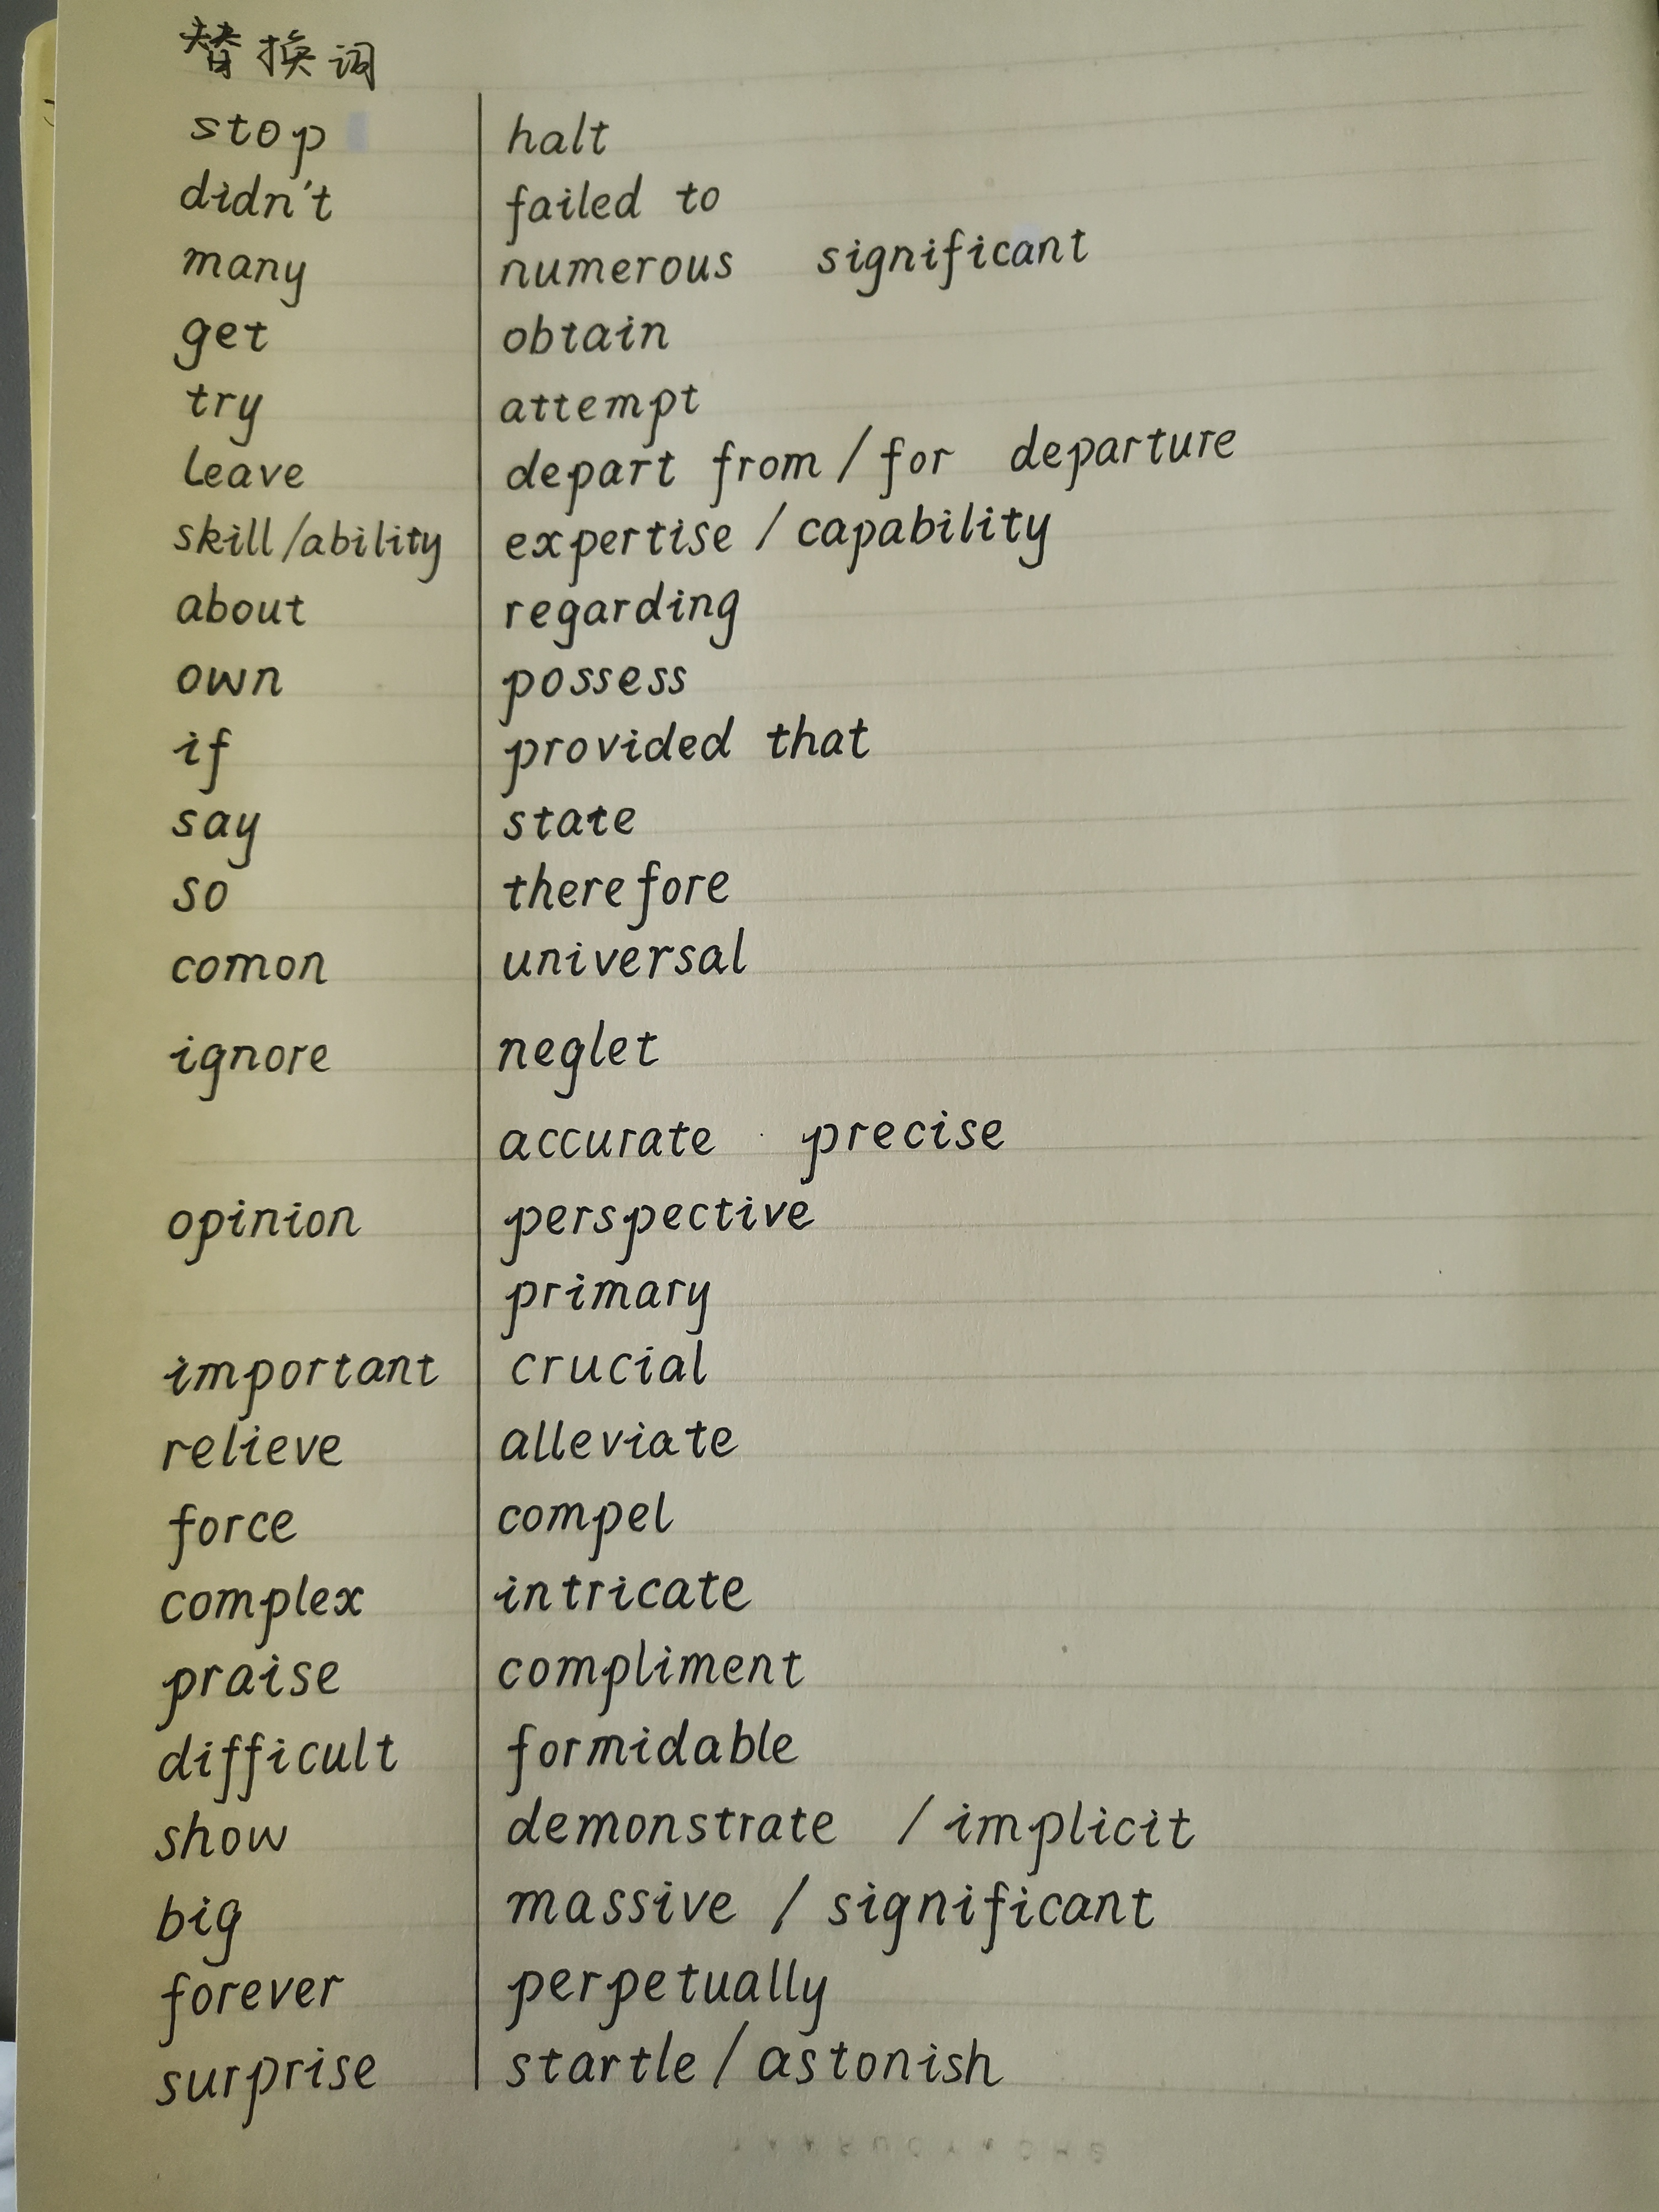 替换词
stop halt
didn't failed to
many numerous significant
get obtain
try attempt
leave depart from / for departure
skill/ability expertise / capability
about regarding
own possess
if provided that
say state
so therefore
comon universal
ignore neglet
accurate precise
opinion perspective
primary
important crucial
relieve alleviate
force compel
complex intricate
praise compliment
difficult formidable
show demonstrate / implicit
big massive / significant
forever perpetually
surprise startle / astonish